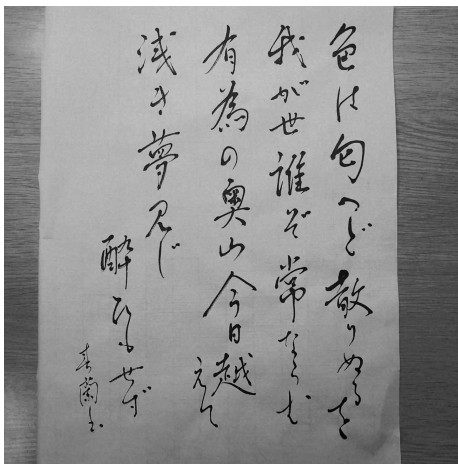 色は匂へど散りぬるを
我が世誰ぞ常ならむ
有為の奥山今日越えて
浅き夢見じ
酔ひもせず
春蘭書